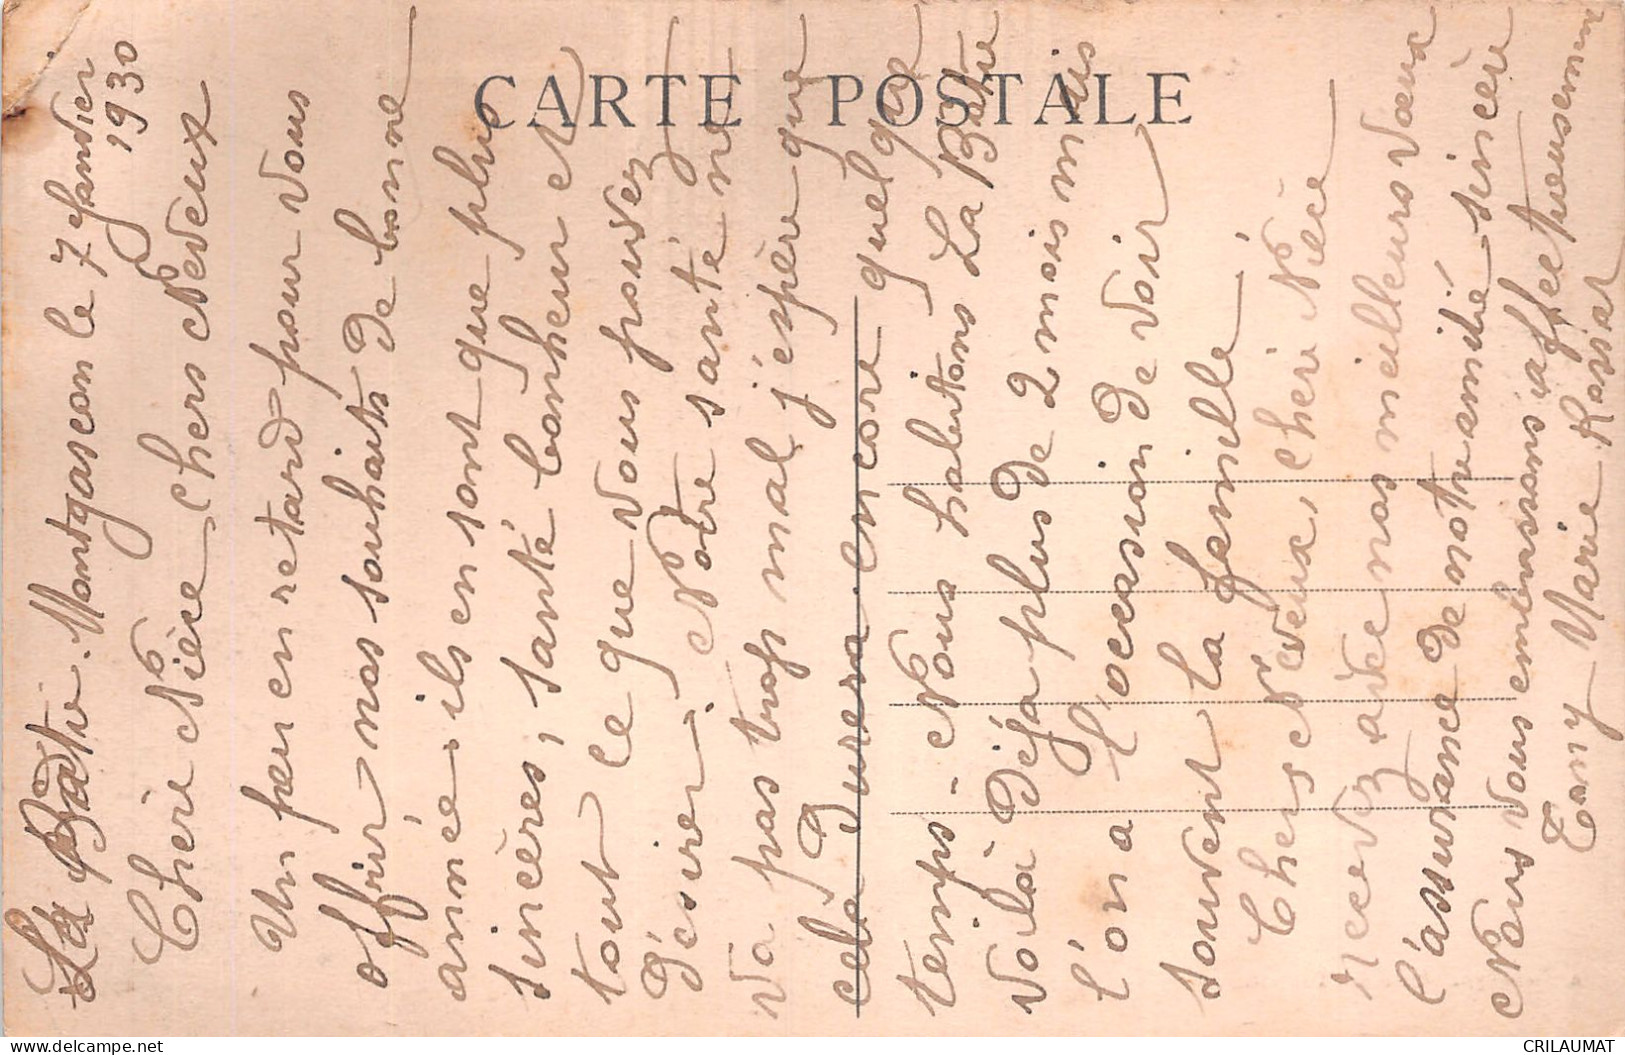 CARTE POSTALE
La Bâtie. Montgascon le 7 Janvier
1930
Chère Nièce, Chers Neveux
Un peu en retard pour vous
offrir nos souhaits de bonne
année, ils en sont que plus
sincères, santé bonheur et
tout ce que vous pouvez
désirer. Notre santé ne
va pas trop mal j'espère que
cela durera encore quelque
temps. Nous habitons La Bâtie
voilà déjà plus de 2 mois mais
l'on a l'ocassion de voir
souvent la famille
Chers Neveux, Chère Nièce
recevez avec nos meilleurs vœux
l'assurance de notre amitié sincère
Nous vous embrassons affectueusement
Tony Marie
CRILAUMAT